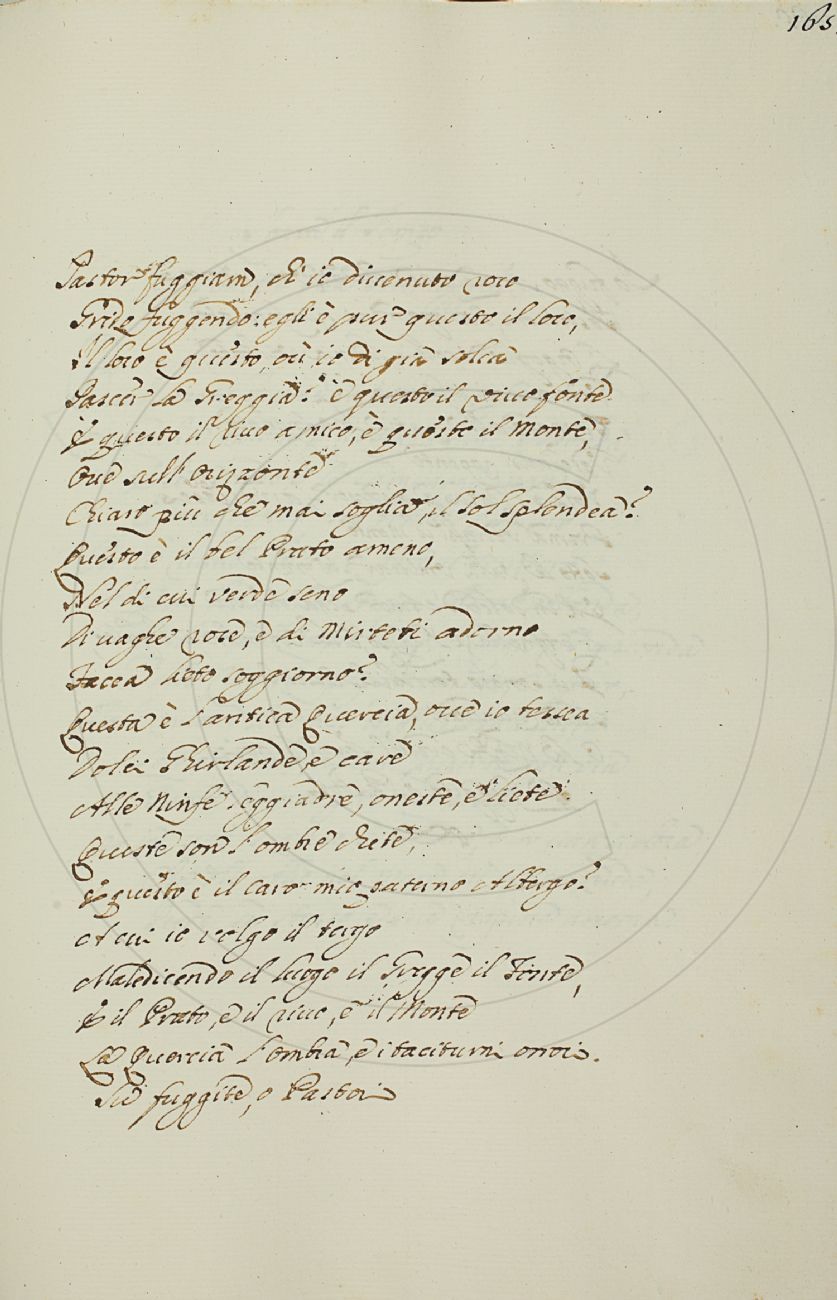 165
Pastor fuggiam, ch'io divenuto roco
Grido fuggendo: egli è pur questo il loco,
Il loco è questo, où io di già solea
Pascer la Greggia? è questo il vivo fonte
È questo il rivo amico, è questo il Monte,
Ove sull' Orizzonte
Chiaro più che mai soglia, il sol splendea?
Questo è il bel Prato ameno,
Nel di cui verde seno
Di vaghe rose, e di Mirteti adorno
Facea lieto soggiorno?
Questa è l'antica Quercia, ove io tessea
Dolci Ghirlande, e care
Alle Ninfe leggiadre, oneste, e liete
Queste son l'ombre chete,
E questo è il caro mio paterno Albergo?
A cui io volgo il tergo
Maledicendo il luogo il Gregge il Fonte,
E il Prato, e il rivo, e il Monte
La Quercia l'ombra, e i taciturni orrori.
Su fuggite, o Pastori